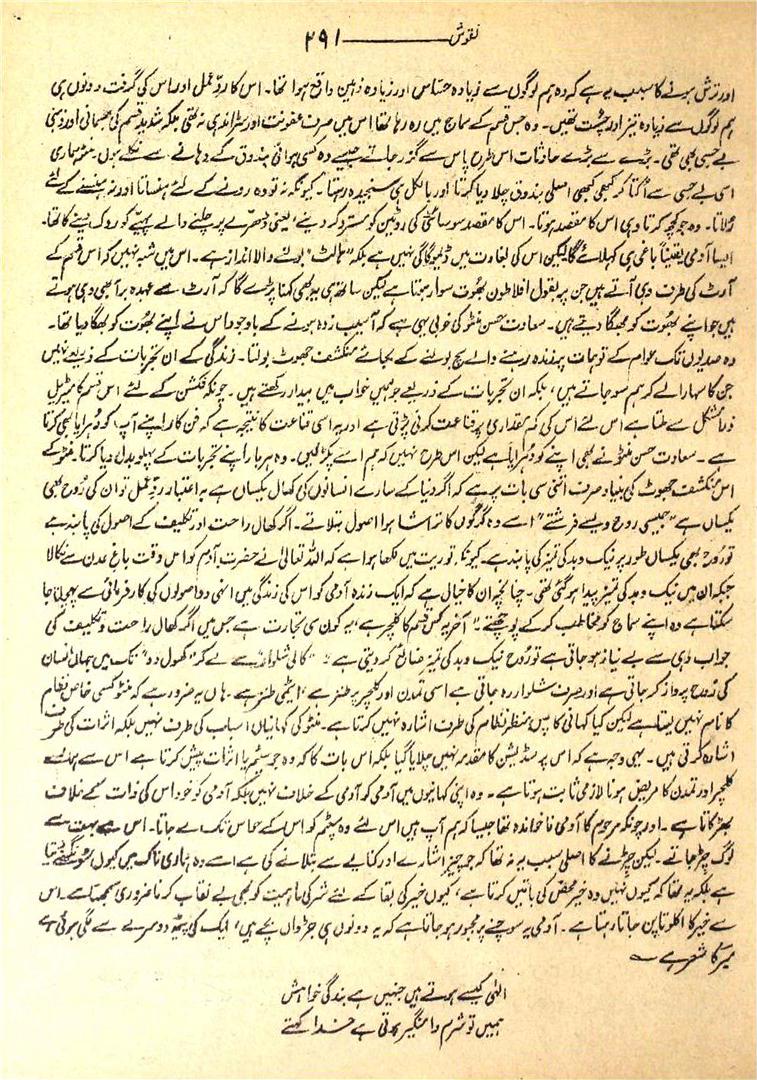 نقوش ــــــــــ ۲۹۱
اور ترش ہونے کا سبب یہ ہے کہ وہ ہم لوگوں سے زیادہ حسّاس اور زیادہ ذہین واقع ہوا تھا۔ اس کا ردِّ عمل اور اس کی گرفت دونوں ہی
ہم لوگوں سے زیادہ تیز اور چست تھیں۔ وہ جس قسم کے سماج میں رہ رہا تھا اس میں صرف عفونت اور سڑاند ہی نہ تھی بلکہ شدید قسم کی جسمانی اور ذہنی
بے حسی بھی تھی۔ بڑے سے بڑے حادثات اس طرح پاس سے گزر جاتے جیسے وہ کسی ہوائی بندوق کے دہانے سے نکلے ہوں۔ منٹو ہماری
اسی بے حسی سے اُکتا کر کبھی کبھی اصلی بندوق چلا دیا کرتا اور بالکل ہی سنجیدہ رہتا۔ کیونکہ نہ تو وہ رونے کے لئے ہنساتا اور نہ ہنسنے کے لئے
رُلاتا۔ وہ جو کچھ کرتا وہی اس کا مقصد ہوتا۔ اس کا مقصد سوسائٹی کی روٹین کو مسترد کر دینے، یعنی دھرے پر چلنے والے پہیّے کو روک دینے کا تھا۔
ایسا آدمی یقیناً باغی ہی کہلائے گا لیکن اس کی بغاوت میں ڈیموگاگی نہیں ہے بلکہ ”ثالث“ بولنے والا انداز ہے۔ اس میں شبہ نہیں کہ اس قسم کے
آرٹ کی طرف وہی آتے ہیں جن پر بقول افلاطون بھُوت سوار ہوتا ہے لیکن ساتھ ہی یہ بھی کہنا پڑے گا کہ آرٹ سے عہدہ برآ بھی وہی ہوتے
ہیں جو اپنے بھُوت کو بھگا دیتے ہیں۔ سعادت حسن منٹو کی خوبی یہی ہے کہ آسیب زدہ ہونے کے باوجود اس نے اپنے بھُوت کو بھگا دیا تھا۔
وہ صدیوں تک عوام کے توہمات پہ زندہ رہنے والے سچ بولنے کے بجائے منکشف جھوٹ بولتا۔ زندگی کے ان تجربات کے ذریعے نہیں
جن کا سہارا لے کہ ہم سو جاتے ہیں، بلکہ ان تجربات کے ذریعے جو ہمیں خواب میں بیدار رکھتے ہیں۔ چونکہ فکشن کے لئے اس قسم کا میٹریل
ذرا مشکل سے ملتا ہے اس لئے اس کی کم مقداری پر قناعت کرنی پڑتی ہے اور یہ اسی قناعت کا نتیجہ ہے کہ فن کار اپنے آپ کو دُہرایا بھی کرتا
ہے۔ سعادت حسن منٹو نے بھی اپنے کو دُہرایا ہے لیکن اس طرح نہیں کہ ہم اسے پکڑ لیں۔ وہ ہر بار اپنے تجربات کے پہلو بدل دیا کرتا۔ منٹو کے
اس منکشف جھوٹ کی بنیاد صرف اتنی سی بات پر ہے کہ اگر دنیا کے سارے انسانوں کی کھال یکساں ہے بہ اعتبار ردِّ عمل تو ان کی رُوح بھی
یکساں ہے ”جیسی روح ویسے فرشتے“ اسے وہ گرگوں کا تراشا ہوا اصول بتلاتے۔ اگر کھال راحت اور تکلیف کے اصول کی پابند ہے
تو رُوح بھی یکساں طور پر نیک و بد کی تمیز کی پابند ہے۔ کیونکہ توریت میں لکھا ہوا ہے کہ اللہ تعالیٰ نے حضرت آدم کو اس وقت باغِ عدن سے نکالا
جبکہ ان میں نیک و بد کی تمیز پیدا ہو گئی تھی۔ چنانچہ ان کا خیال ہے کہ ایک زندہ آدمی کو اس کی زندگی میں انہی دو اصولوں کی کارفرمائی سے پہچانا جا
سکتا ہے وہ اپنے سماج کو مخاطب کر کے پوچھتے ”آخر یہ کس قسم کا کلچر ہے، یہ کون سی تجارت ہے جس میں اگر کھال راحت و تکلیف کی
جواب دہی سے بے نیاز ہو جاتی ہے تو رُوح نیک و بد کی تمیز ضائع کر دیتی ہے“ ”کالی شلوار“ سے لے کر ”کھول دو“ تک میں جہاں انسان
کی رُوح پرواز کر جاتی ہے اور صرف شلوار رہ جاتی ہے اسی تمدن اور کلچر پر طنز ہے، ایٹمی طنز ہے۔ ہاں یہ ضرور ہے کہ منٹو کسی خاص نظام
کا نام نہیں لیتا ہے لیکن کیا کہانی کا پس منظر نظام کی طرف اشارہ نہیں کرتا ہے۔ منٹو کی کہانیاں اسباب کی طرف نہیں بلکہ اثرات کی طرف
اشارہ کرتی ہیں۔ یہی وجہ ہے کہ اس پر سڈیشن کا مقدمہ نہیں چلایا گیا بلکہ اس بات کا کہ وہ جو سمٹم یا اثرات پیش کرتا ہے اس سے ہمارے
کلچر اور تمدن کا مریض ہونا لازمی ثابت ہوتا ہے۔ وہ اپنی کہانیوں میں آدمی کو آدمی کے خلاف نہیں بلکہ آدمی کو خود اس کی ذات کے خلاف
بھڑکاتا ہے۔ اور چونکہ مرحوم کا آدمی ناخواندہ تھا جیسا کہ ہم آپ ہیں اس لئے وہ سمٹم کو اس کے حواس تک لے جاتا۔ اس سے بہت سے
لوگ چڑھ جاتے۔ لیکن چڑنے کا اصلی سبب یہ نہ تھا کہ جو چیز اشارے اور کنایے سے بتلانے کی ہے اسے وہ ہماری ناک میں کیوں ٹھونک دیتا
ہے بلکہ یہ تھا کہ کیوں نہیں وہ خیر محض کی باتیں کرتا ہے، کیوں خیر کی بقا کے لئے شر کی ماہیت کو بھی بے نقاب کرنا ضروری سمجھتا ہے۔ اس
سے خیر کا اکلوتا پن جاتا رہتا ہے۔ آدمی یہ سوچنے پر مجبور ہو جاتا ہے کہ یہ دونوں ہی جڑواں بچے ہیں، ایک کی پیٹھ دوسرے سے لگی ہوئی ہے
میرؔ کا شعر ہے ؎
الٰہی کیسے ہوتے ہیں جنہیں ہے بندگی خواہش
ہمیں تو شرم دامنگیر ہوتی ہے خدا کہتے